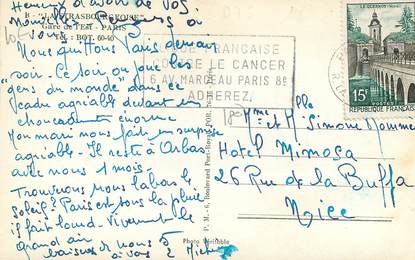 Heureux d'avoir de vos
nouvelles
"LA STRASBOURGEOISE"
Gare de l'Est - PARIS
Tél : BOT. 60-
Nous quittons Paris demain
soir. Ce soir on joue les
"gens du monde" dans ce
cadre agréable devant
choucroute énorme
Mon mari nous fait un surprise
agréable. Il reste à
avec nous 1 mois.
Trouverons nous là bas le
soleil? Paris est sous la pluie
il fait lourd. Vivement le
grand air
baisers de nous 5
à vous 2
P. M. - 6, Boulevard
Photo Véritable
FRANÇAISE
CONTRE LE CANCER
6 AV. MARCEAU PARIS 8e
ADHEREZ
LE QUESNOY (Nord)
15F
POSTES
REPUBLIQUE FRANÇAISE
Mme et Mr Simone
Hotel Mimosa
26 Rue de la Buffa
Nice